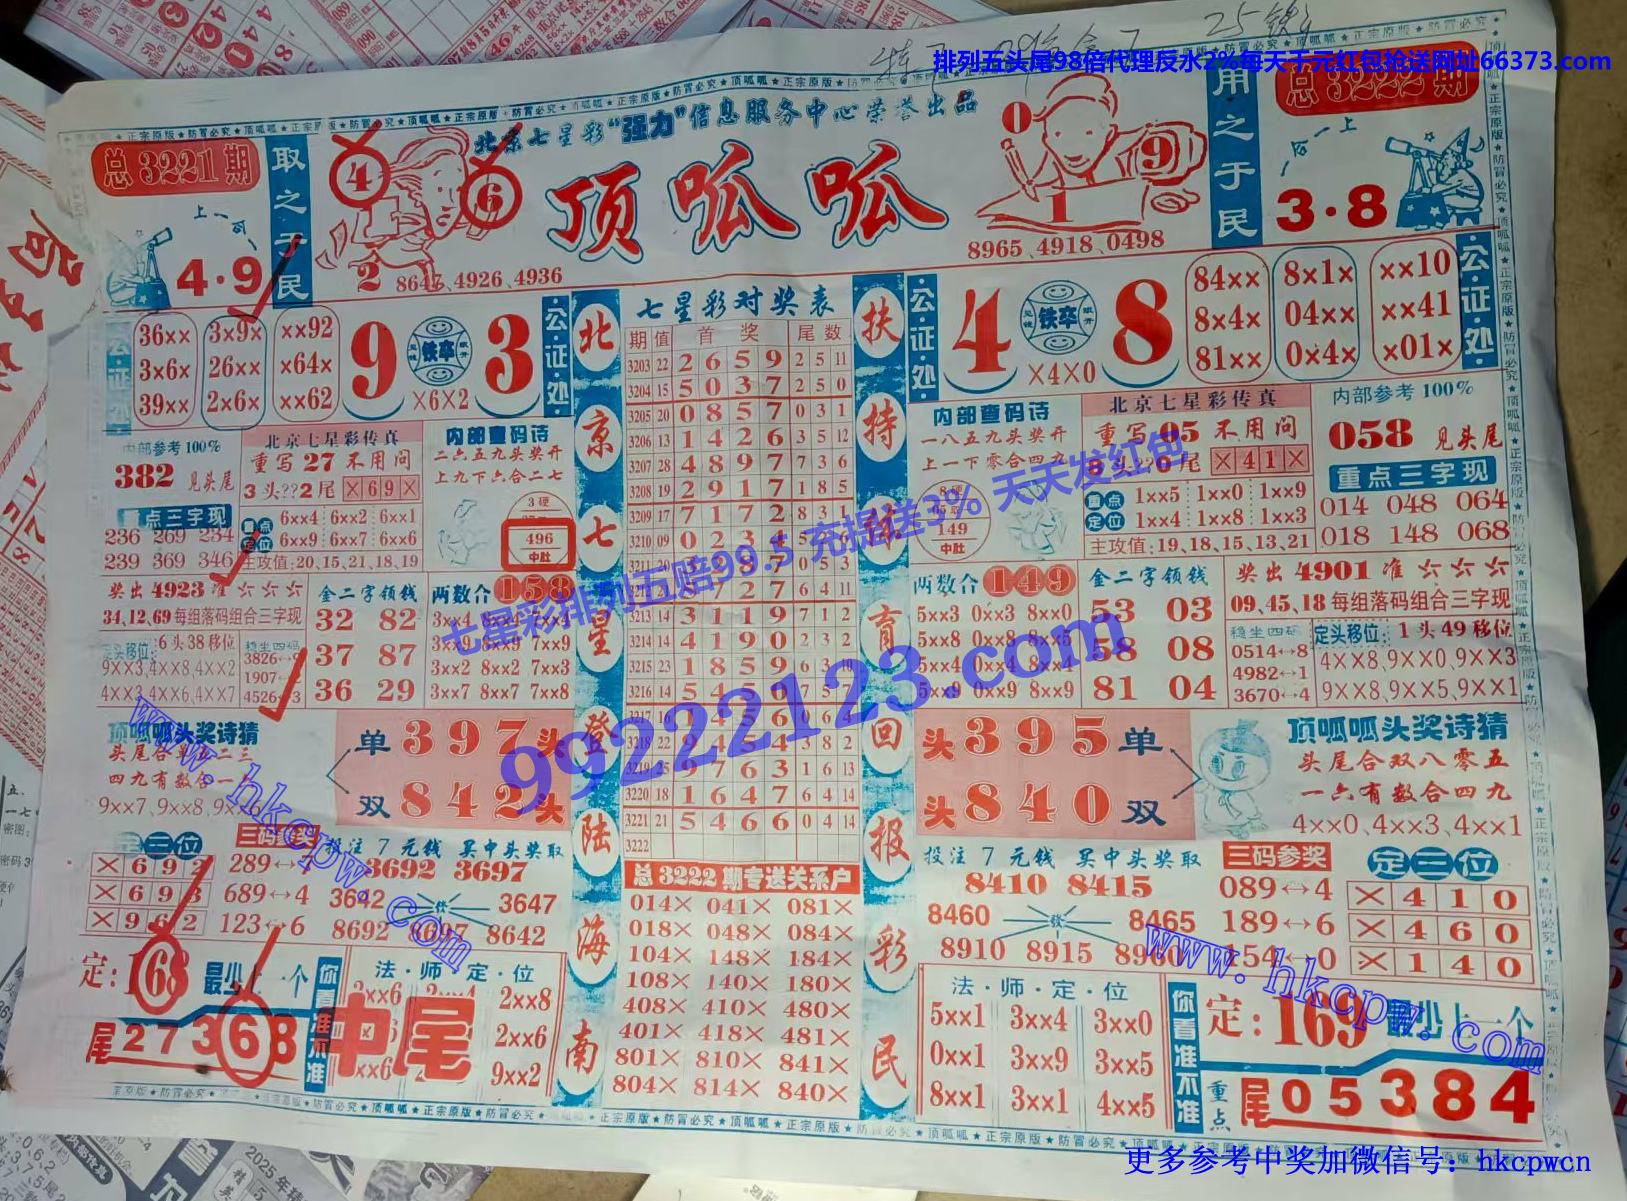 排列五头尾98倍代理反水2%每天千元红包抢送网址66373.com
北京七星彩“强力”信息服务中心荣誉出品
顶呱呱
总3221期
取之于民
上一
4·9
4
6
2
8647、4926、4936
0
9
1
8965、4918、0498
用之于民
总3222期
上一
3·8
公证处
36×× 3×9× ××92
3×6× 26×× ×64×
39×× 2×6× ××62
9 铁卒 3
×6×2
公证处
内部参考100%
382 见头尾
重点三字现
236 269 234
239 369 346
北京七星彩传真
重写27不用问
3头??2尾 ×69×
重点定位
6××4 6××2 6××1
6××9 6××7 6××6
主攻值:20,15,21,18,19
内部查码诗
二六五九头奖开
上九下六合二七
3硬
496
中肚
奖出4923准
34,12,69每组落码组合三字现
定头移位: 6头38移位
9××3,4××8,4××2
4××3,4××6,4××7
稳坐四码
3826↔9
1907↔
4526↔3
金二字领钱
32 82
37 87
36 29
两数合158
3××4 8××4 7××4
3××9 8××9 7××9
3××2 8××2 7××3
3××7 8××7 7××8
顶呱呱头奖诗猜
头尾合单位二三
四九有数合一
9××7,9××8,9××6
单397头
双842头
定三位
×692
×693
×962
三码参奖
289↔4
689↔4
123↔6
投注7元钱 买中头奖取
3692 3697
3642 发 3647
8692 8697 8642
定:168 最少上一个
尾27368
你看准不准
法·师·定·位
2××6 2××4 2××8
2××6
9××2
中尾
北京七星登陆海南
七星彩对奖表
期 值 首奖 尾数
3203 22 2659 2 5 11
3204 15 5037 2 5 0
3205 20 0857 0 3 1
3206 13 1426 3 5 12
3207 28 4897 7 3 6
3208 19 2917 1 8 5
3209 17 7172 8 3 1
3210 09 0234
3213 14 3119 7 1 2
3214 14 4190 2 3 2
3215 23 1859 6 3 10
3216 14
3218 22 9454 3 8 2
3219 25 9763 1 6 13
3220 18 1647 6 4 14
3221 21 5466 0 4 14
3222
总3222期专送关系户
014× 041× 081×
018× 048× 084×
104× 148× 184×
108× 140× 180×
408× 410× 480×
401× 418× 481×
801× 810× 841×
804× 814× 840×
扶持体育回报彩民
公证处
4 铁卒 8
×4×0
84×× 8×1× ××10
8×4× 04×× ××41
81×× 0×4× ×01×
公证处
内部查码诗
一八五九头奖开
上一下零合四九
8硬
149
中肚
北京七星彩传真
重写05不用问
8头??0尾 ×41×
重点定位
1××5 1××0 1××9
1××4 1××8 1××3
主攻值:19,18,15,13,21
内部参考100%
058 见头尾
重点三字现
014 048 064
018 148 068
两数合149
5××3 0××3 8××0
5××8 0××8 8××5
5××4 0××4 8××4
5××9 0××9 8××9
金二字领钱
53 03
58 08
81 04
奖出4901准
09,45,18每组落码组合三字现
稳坐四码
0514↔8
4982↔1
3670↔4
定头移位: 1头49移位
4××8,9××0,9××3
9××8,9××5,9××1
头395单
头840双
顶呱呱头奖诗猜
头尾合双八零五
一六有数合四九
4××0,4××3,4××1
投注7元钱 买中头奖取
8410 8415
8460 发 8465
8910 8915 8960
三码参奖
089↔4
189↔6
154↔0
定三位
×410
×460
×140
法·师·定·位
5××1 3××4 3××0
0××1 3××9 3××5
8××1 3××1 4××5
你看准不准
定:169 最少上一个
重点
尾05384
七星彩排列五赔99.5 充提送3% 天天发红包
99222123.com
www.hkcpw.com
www.hkcpw.com
更多参考中奖加微信号: hkcpwcn